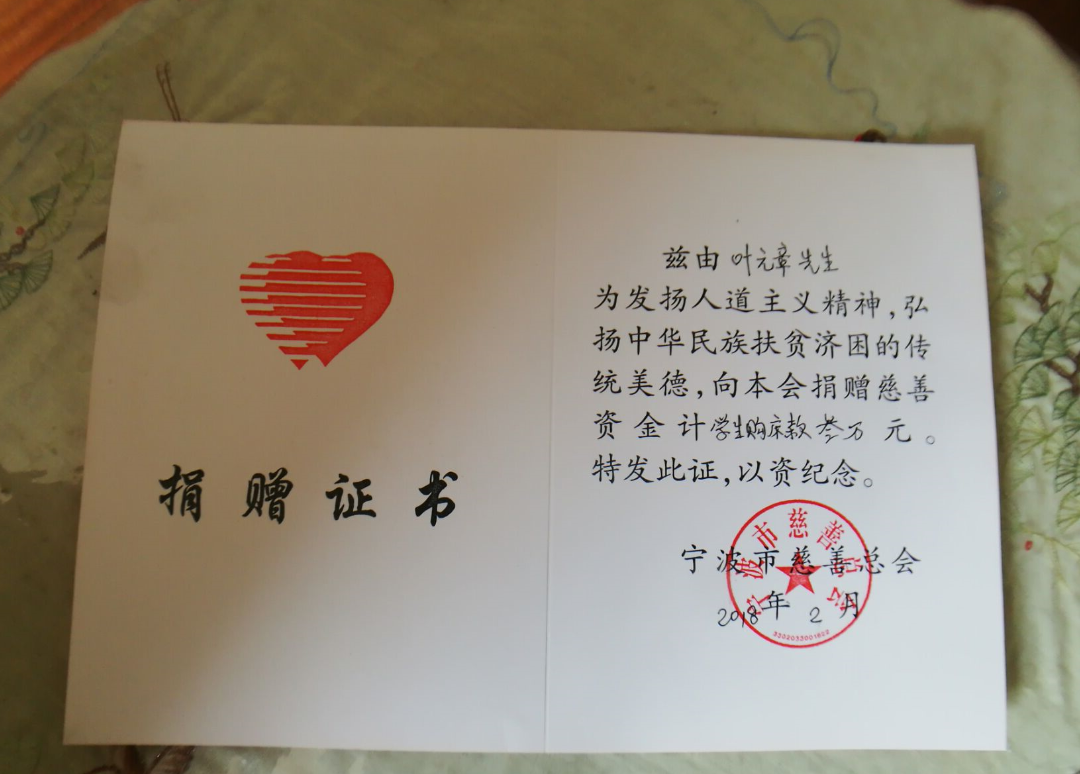 捐赠证书
兹由叶元章先生
为发扬人道主义精神,弘
扬中华民族扶贫济困的传
统美德,向本会捐赠慈善
资金计学生购床款叁万元。
特发此证,以资纪念。
宁波市慈善总会
2018年2月
宁波市慈善总会
3302033001822